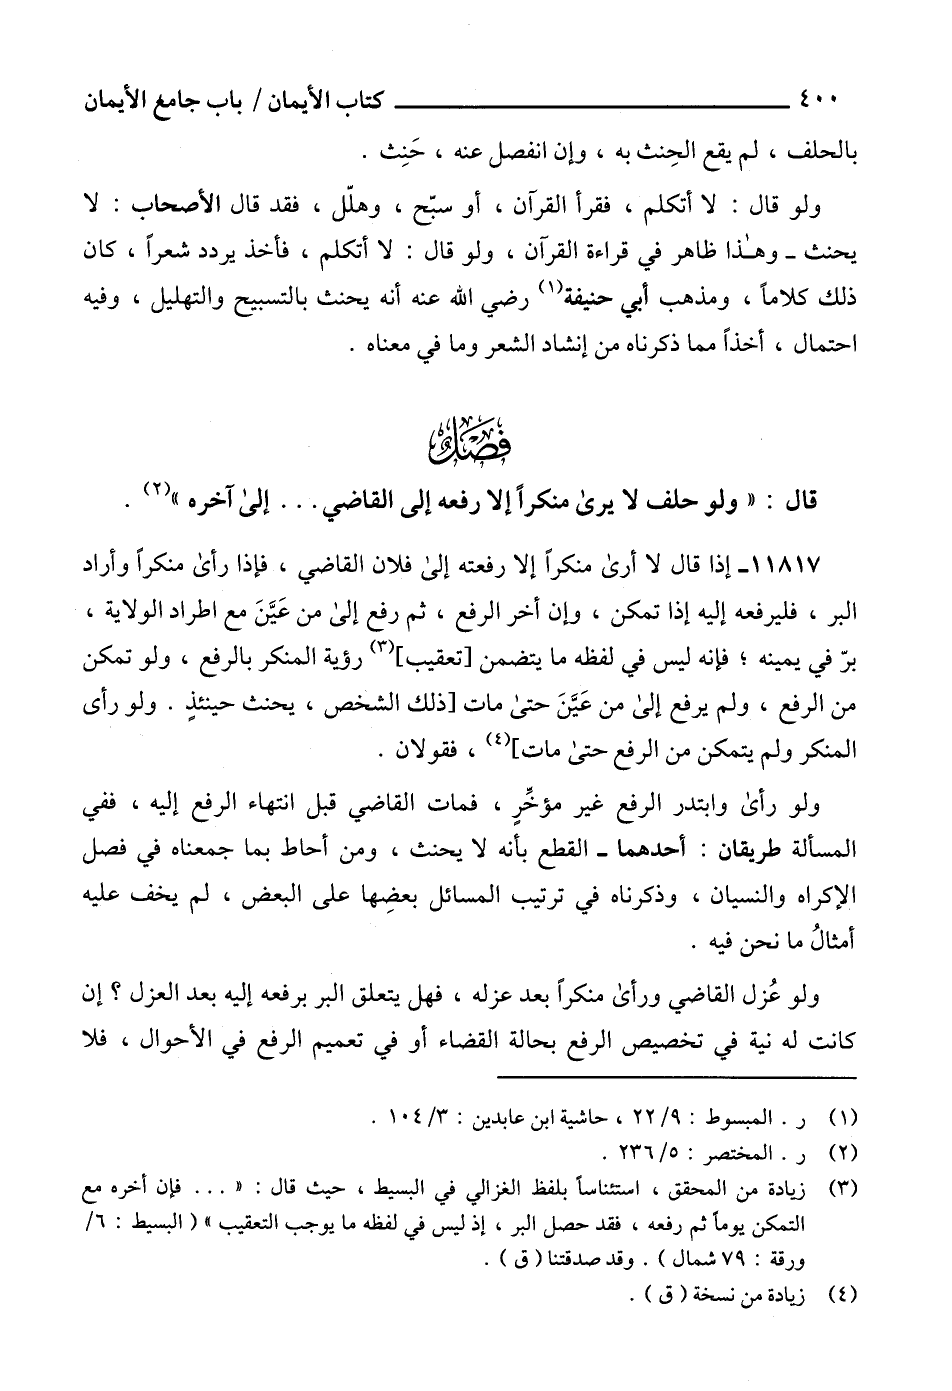 ٤٠٠ ــــــــــــــــــــــــــــــــــــــــــــــــ كتاب الأيمان / باب جامع الأيمان
بالحلف ، لم يقع الحِنث به ، وإن انفصل عنه ، حَنِث .
ولو قال : لا أتكلم ، فقرأ القرآن ، أو سبّح ، وهلّل ، فقد قال الأصحاب : لا
يحنث ـ وهـٰذا ظاهر في قراءة القرآن ، ولو قال : لا أتكلم ، فأخذ يردد شعراً ، كان
ذلك كلاماً ، ومذهب أبي حنيفة(١) رضي الله عنه أنه يحنث بالتسبيح والتهليل ، وفيه
احتمال ، أخذاً مما ذكرناه من إنشاد الشعر وما في معناه .
فصل
قال : « ولو حلف لا يرىٰ منكراً إلا رفعه إلى القاضي . . . إلىٰ آخره »(٢) .
١١٨١٧ـ إذا قال لا أرىٰ منكراً إلا رفعته إلىٰ فلان القاضي ، فإذا رأىٰ منكراً وأراد
البر ، فليرفعه إليه إذا تمكن ، وإن أخر الرفع ، ثم رفع إلىٰ من عَيَّنَ مع اطراد الولاية ،
برّ في يمينه ؛ فإنه ليس في لفظه ما يتضمن [تعقيب](٣) رؤية المنكر بالرفع ، ولو تمكن
من الرفع ، ولم يرفع إلىٰ من عَيَّنَ حتىٰ مات [ذلك الشخص ، يحنث حينئذٍ . ولو رأى
المنكر ولم يتمكن من الرفع حتىٰ مات](٤) ، فقولان .
ولو رأىٰ وابتدر الرفع غير مؤخِّرٍ ، فمات القاضي قبل انتهاء الرفع إليه ، ففي
المسألة طريقان : أحدهما ـ القطع بأنه لا يحنث ، ومن أحاط بما جمعناه في فصل
الإكراه والنسيان ، وذكرناه في ترتيب المسائل بعضِها على البعض ، لم يخف عليه
أمثالُ ما نحن فيه .
ولو عُزل القاضي ورأىٰ منكراً بعد عزله ، فهل يتعلق البر برفعه إليه بعد العزل ؟ إن
كانت له نية في تخصيص الرفع بحالة القضاء أو في تعميم الرفع في الأحوال ، فلا
(١) ر . المبسوط : ٢٢/٩ ، حاشية ابن عابدين : ١٠٤/٣ .
(٢) ر . المختصر : ٢٣٦/٥ .
(٣) زيادة من المحقق ، استئناساً بلفظ الغزالي في البسيط ، حيث قال : « . . . فإن أخره مع
التمكن يوماً ثم رفعه ، فقد حصل البر ، إذ ليس في لفظه ما يوجب التعقيب » ( البسيط : ٦/
ورقة : ٧٩ شمال ) . وقد صدقتنا ( ق ) .
(٤) زيادة من نسخة ( ق ) .